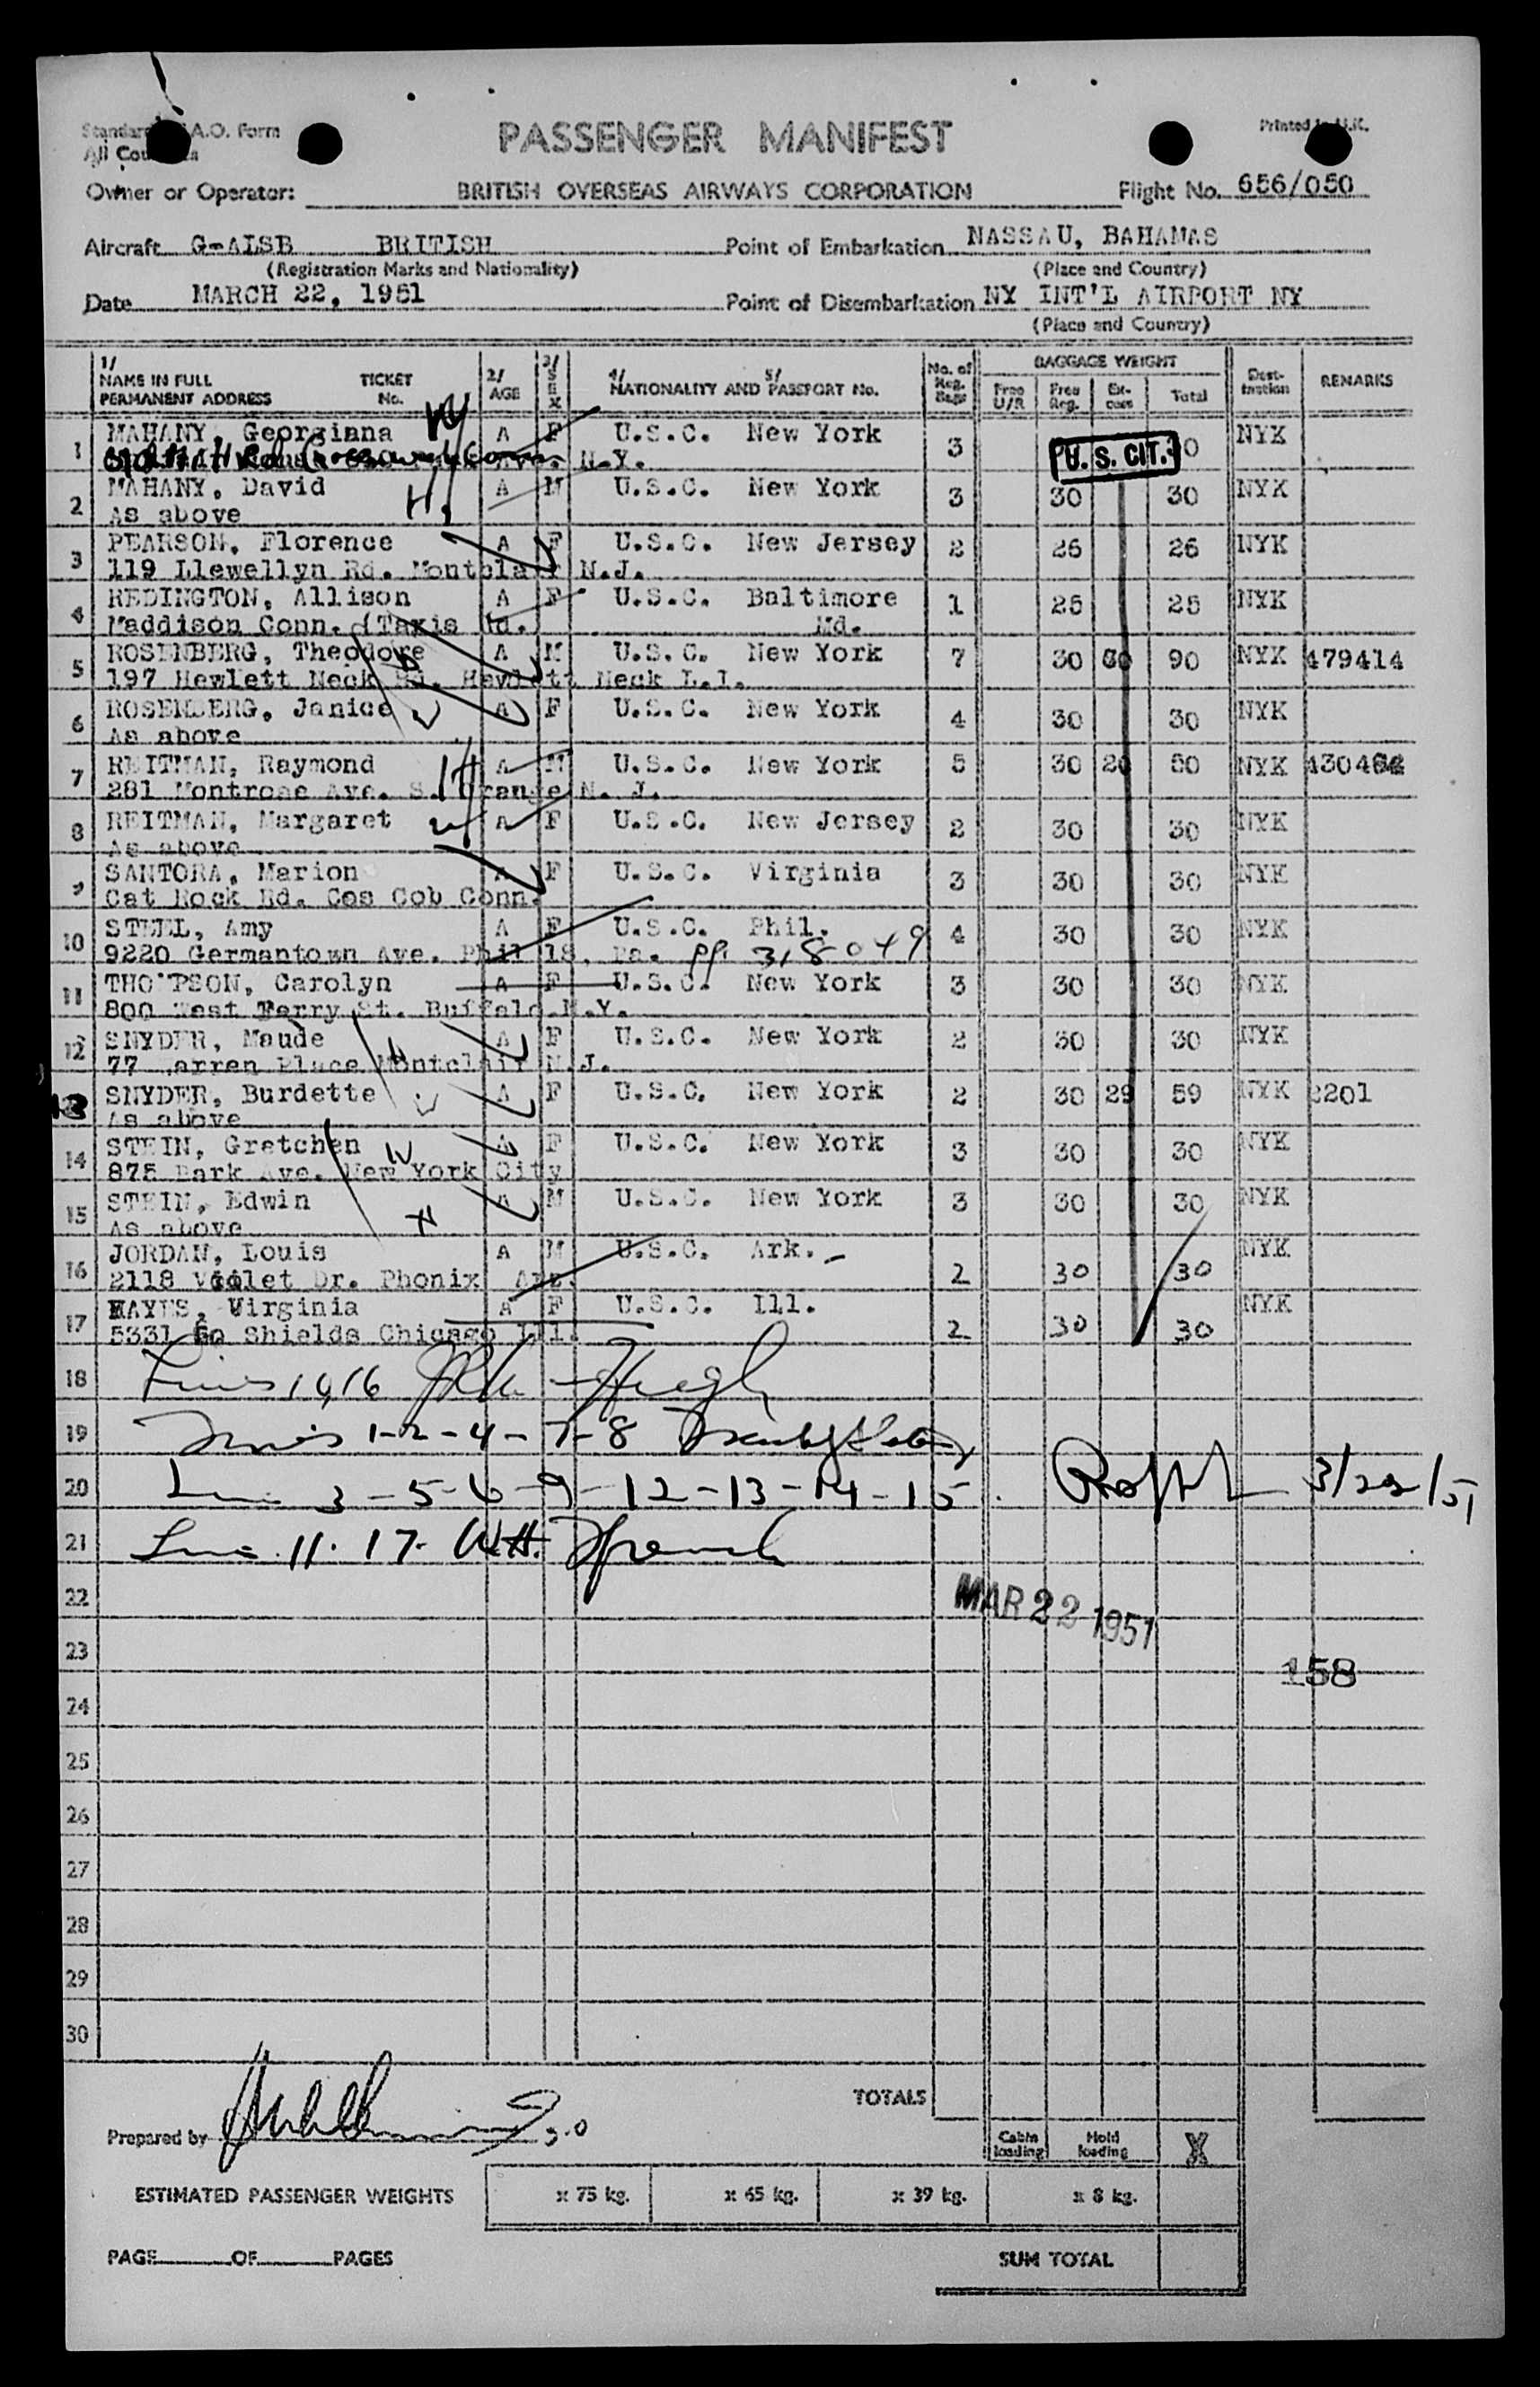 PASSENGER MANIFEST
Printed U.K.
Owner or Operator: BRITISH OVERSEAS AIRWAYS CORPORATION Flight No. 656/050
Aircraft G-ALSB BRITISH Point of Embarkation NASSAU, BAHAMAS
(Registration Marks and Nationality) (Place and Country)
Date MARCH 22, 1951 Point of Disembarkation NY INT'L AIRPORT NY
(Place and Country)
1/ NAME IN FULL PERMANENT ADDRESS TICKET No. 2/ AGE 3/ SEX 4/ NATIONALITY AND 5/ PASSPORT No. No. of Reg. Bags BAGGAGE WEIGHT Free U/R Free Reg. Ex-cess Total Dest-ination REMARKS
1 MAHANY, Georgiana A F U.S.C. New York 3 NYK
N.Y. U. S. CIT.
2 MAHANY, David H. A M U.S.C. New York 3 30 30 NYK
As above
3 PEARSON, Florence A F U.S.C. New Jersey 2 26 26 NYK
119 Llewellyn Rd. Montclair N.J.
4 REDINGTON, Allison A F U.S.C. Baltimore 1 25 25 NYK
Maddison Conn. Md.
5 ROSENBERG, Theodore A M U.S.C. New York 7 30 60 90 NYK 479414
197 Hewlett Neck Rd. Hewlett Neck L.I.
6 ROSENBERG, Janice A F U.S.C. New York 4 30 30 NYK
As above
7 REITMAN, Raymond H A M U.S.C. New York 5 30 20 50 NYK
281 Montrose Ave. S. Orange N. J.
8 REITMAN, Margaret A F U.S.C. New Jersey 2 30 30 NYK
As above
9 SANTORA, Marion A F U.S.C. Virginia 3 30 30 NYK
Cat Rock Rd. Cos Cob Conn.
10 STEEL, Amy A F U.S.C. Phil. 4 30 30 NYK
9220 Germantown Ave. Phil 18, Pa. pp. 318049
11 THOMPSON, Carolyn A F U.S.C. New York 3 30 30 NYK
800 West Ferry St. Buffalo N.Y.
12 SNYDER, Maude A F U.S.C. New York 2 30 30 NYK
77 Warren Place Montclair N.J.
13 SNYDER, Burdette W A F U.S.C. New York 2 30 29 59 NYK 2201
As above
14 STEIN, Gretchen W A F U.S.C. New York 3 30 30 NYK
875 Park Ave. New York City
15 STEIN, Edwin H A M U.S.C. New York 3 30 30 NYK
As above
16 JORDAN, Louis A M U.S.C. Ark. 2 30 30 NYK
2118 Violet Dr. Phonix Arz.
17 HAYES, Virginia A F U.S.C. Ill. 2 30 30 NYK
5331 So Shields Chicago Ill.
18 Lines 10,16
19 Lines 1-2-4-7-8
20 Line 3-5-6-9-12-13-14-15. 3/22/51
21 Line 11. 17.
22 MAR 22 1951
23 158
24
25
26
27
28
29
30
TOTALS
Prepared by Cabin loading Hold loading X
ESTIMATED PASSENGER WEIGHTS x 75 kg. x 65 kg. x 39 kg. x 8 kg.
PAGE OF PAGES SUM TOTAL